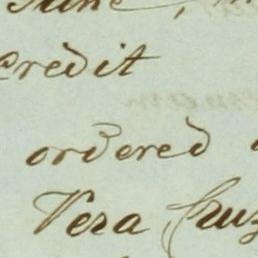 credit
ordered
Vera Cruz